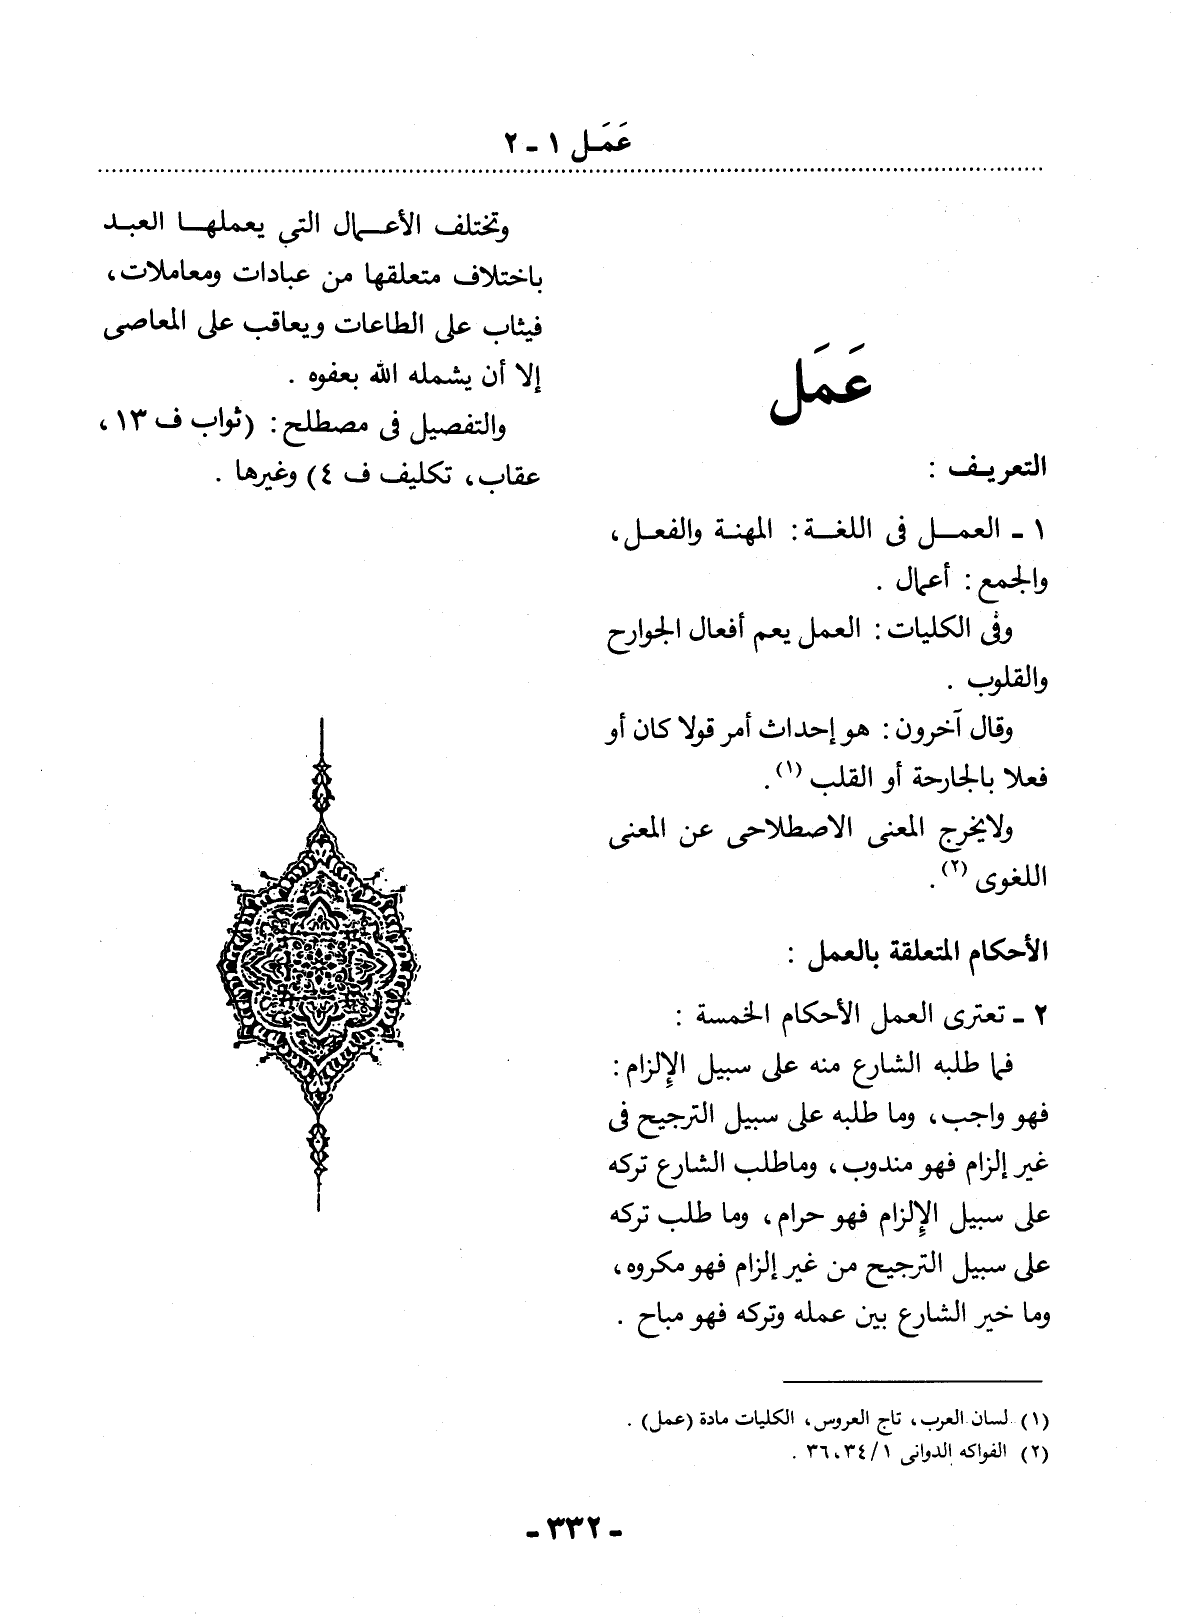 عَمَـل ١ ـ ٢
عَمَل
التعريـف :
١ ـ العمـــل فى اللغــة : المهنـة والفعـل،
والجمع : أعمال .
وفى الكليات : العمل يعم أفعال الجوارح
والقلوب .
وقال آخرون : هو إحداث أمر قولا كان أو
فعلا بالجارحة أو القلب (١).
ولايخرج المعنى الاصطلاحى عن المعنى
اللغوى (٢).
الأحكام المتعلقة بالعمل :
٢ ـ تعترى العمل الأحكام الخمسة :
فما طلبه الشارع منه على سبيل الإلزام :
فهو واجب، وما طلبه على سبيل الترجيح فى
غير إلزام فهو مندوب، وماطلب الشارع تركه
على سبيل الإلزام فهو حرام، وما طلب تركه
على سبيل الترجيح من غير إلزام فهو مكروه،
وما خير الشارع بين عمله وتركه فهو مباح .
وتختلف الأعــمال التي يعملهــا العبـد
باختلاف متعلقها من عبادات ومعاملات،
فيثاب على الطاعات ويعاقب على المعاصى
إلا أن يشمله الله بعفوه .
والتفصيل فى مصطلح : (ثواب ف ١٣،
عقاب، تكليف ف ٤) وغيرها .
(١) لسان العرب، تاج العروس، الكليات مادة (عمل) .
(٢) الفواكه الدوانى ١/ ٣٤، ٣٦ .
ـ ٣٣٢ ـ